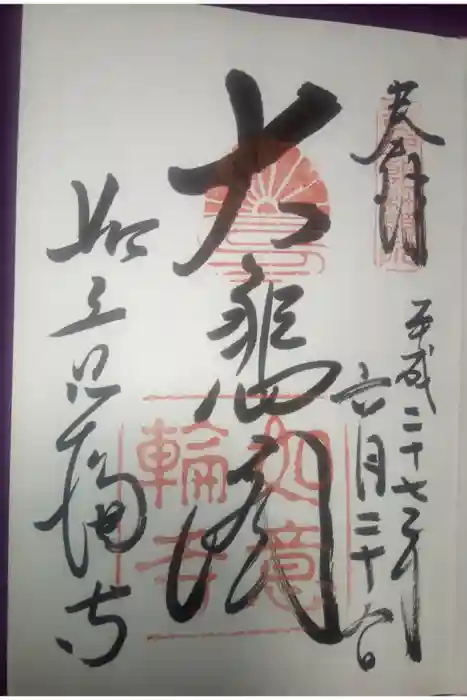 奉拝
平成二十七年
六月二十六日
大悲閣
如意輪寺
如意
輪寺